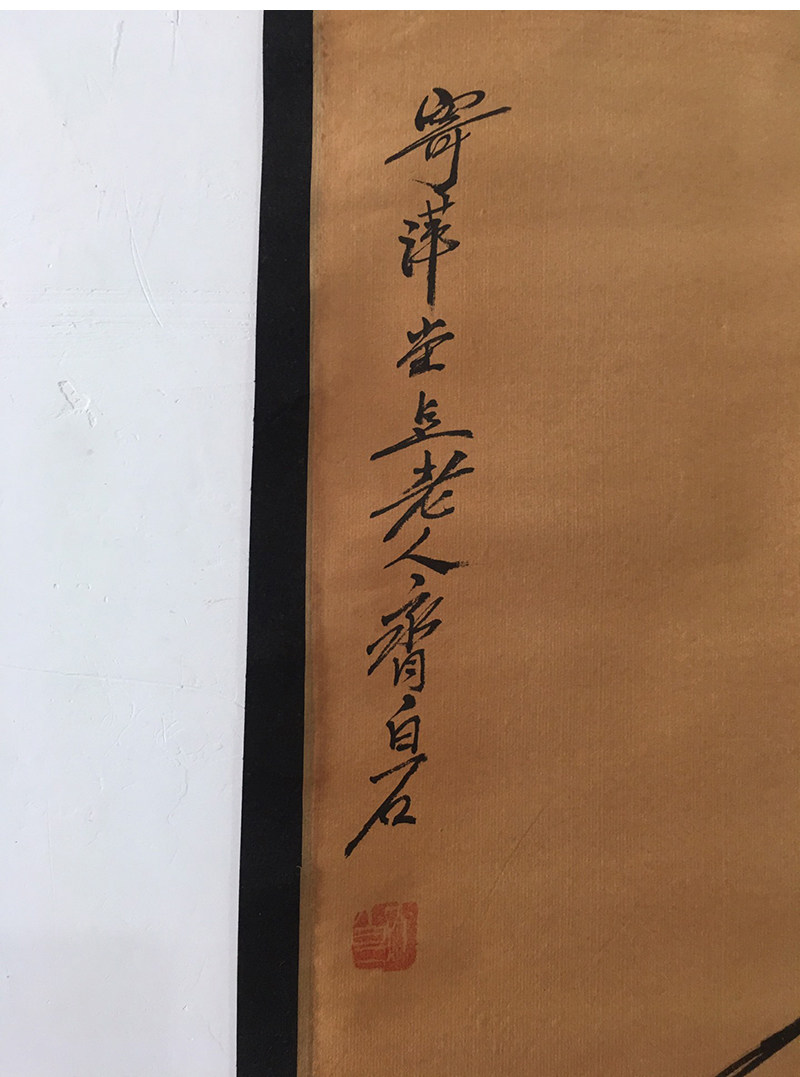 寄萍堂上老人齊白石